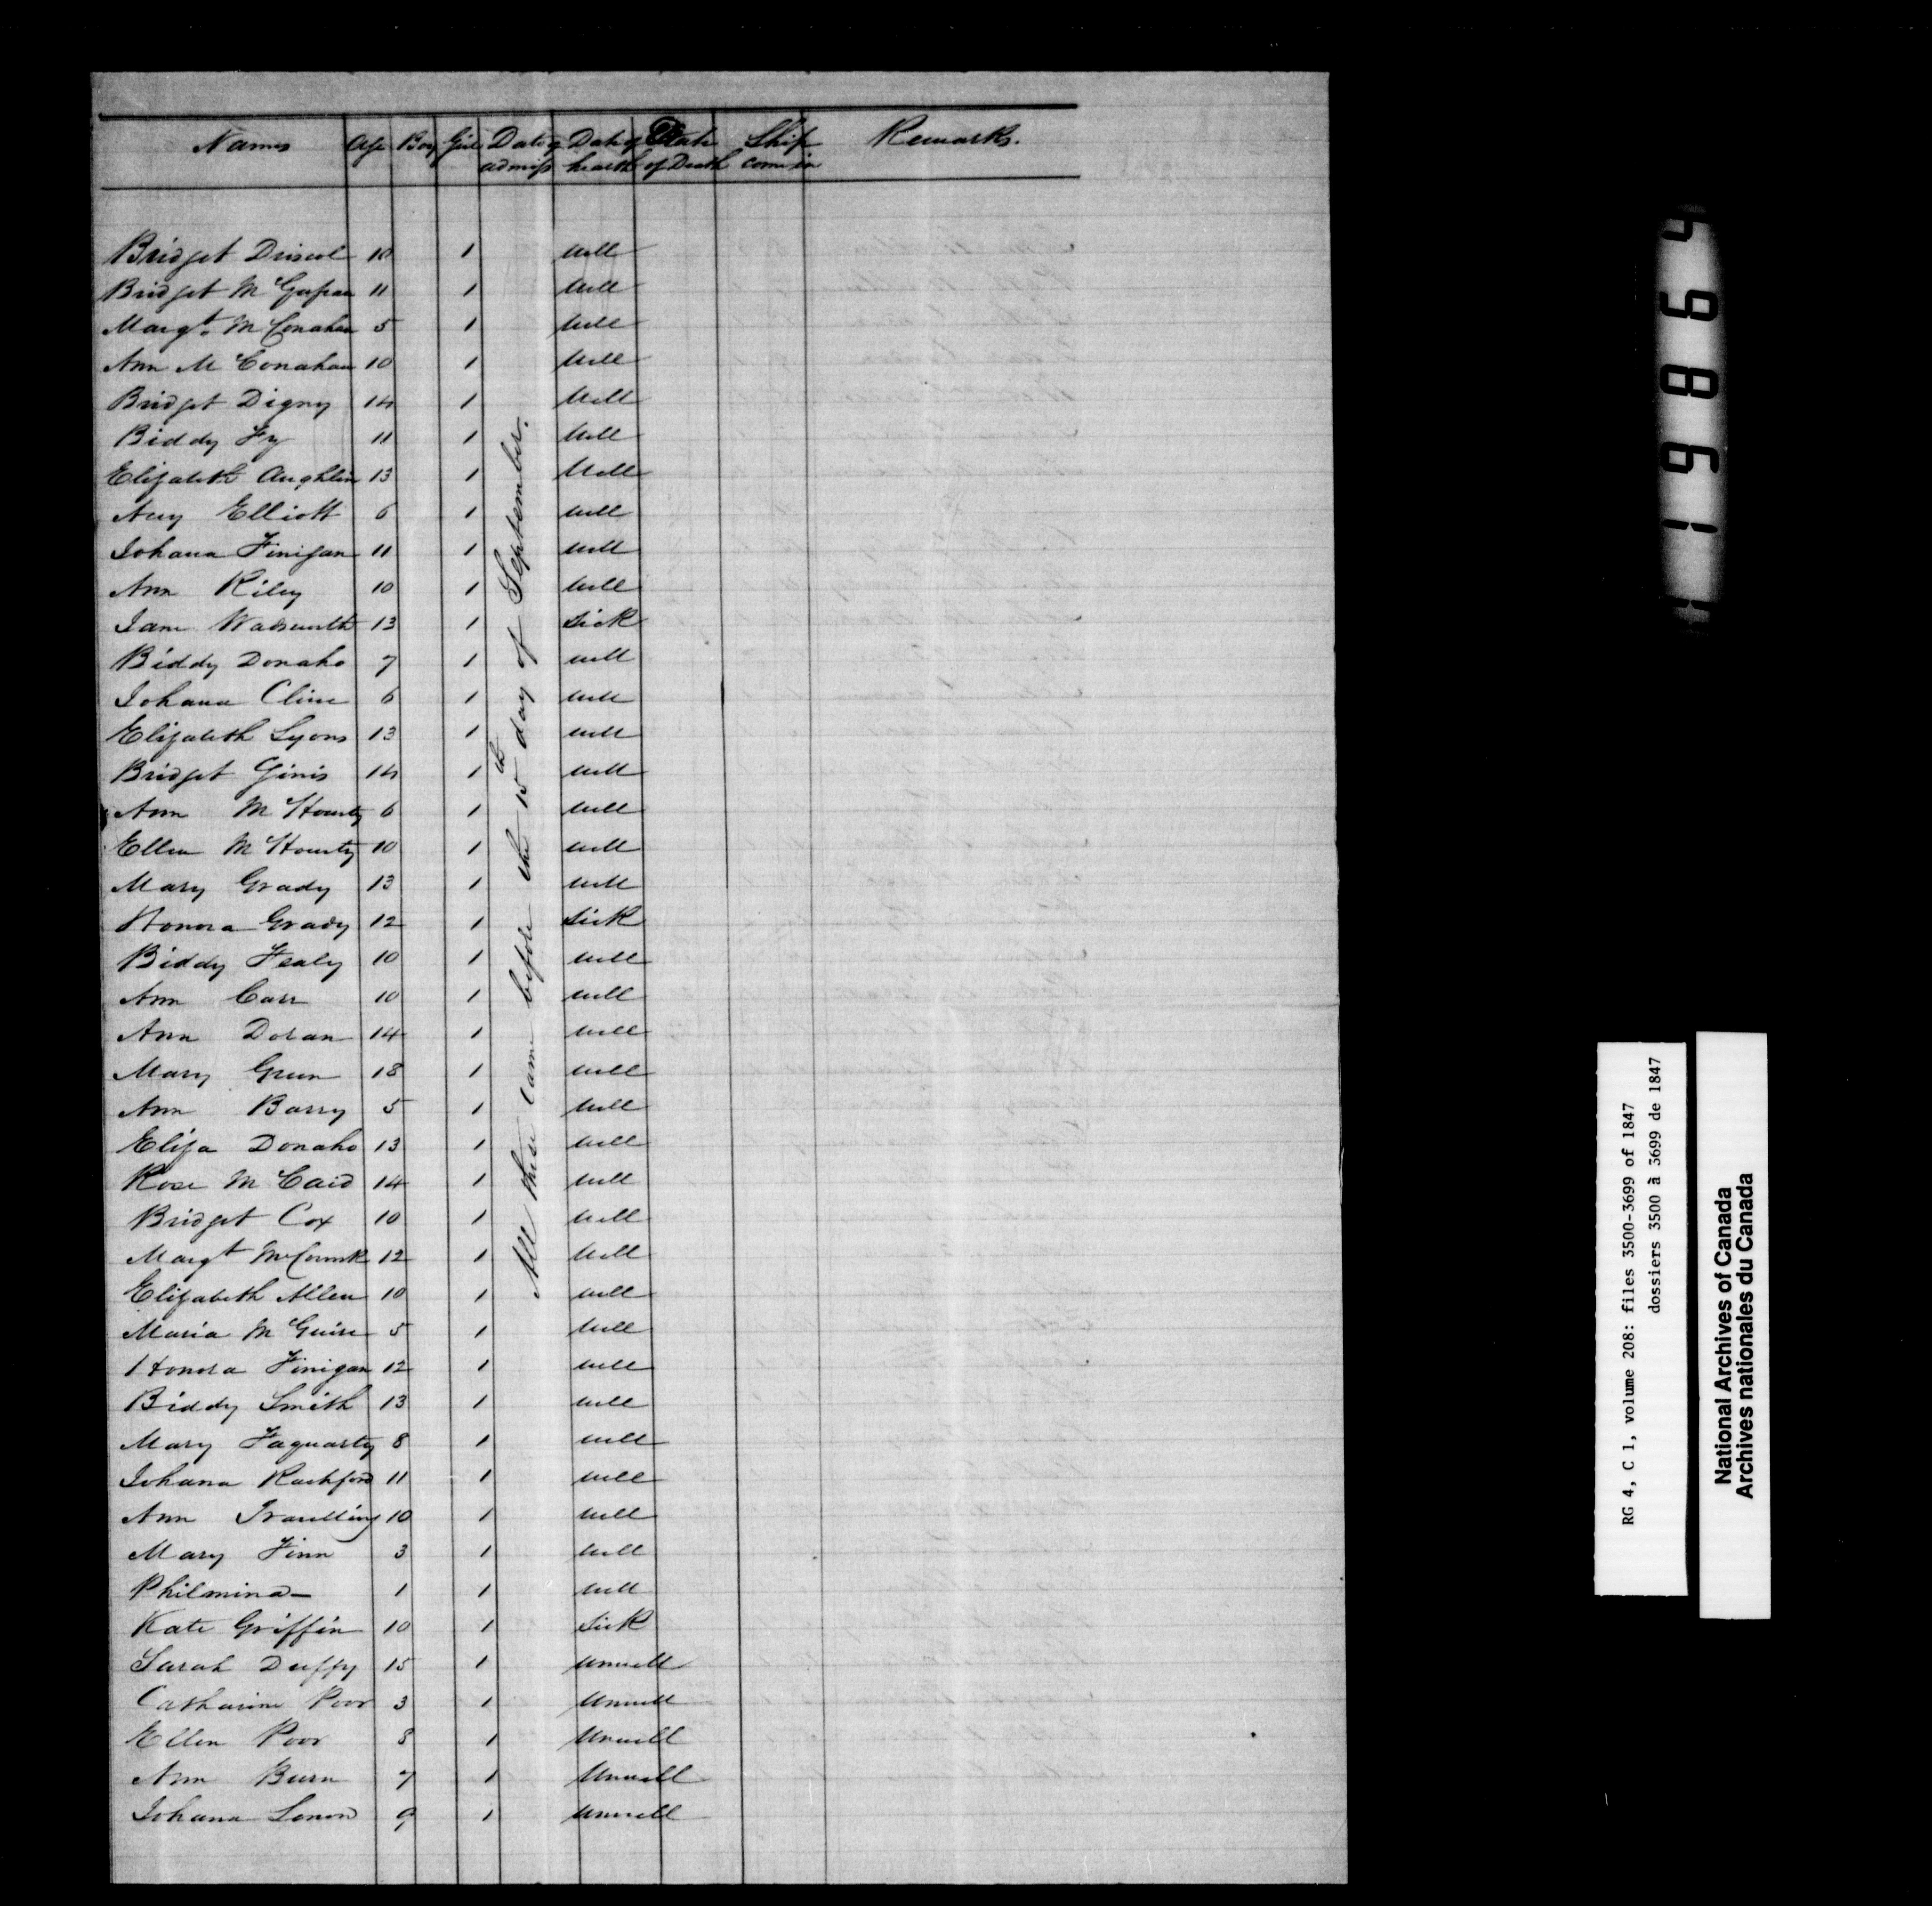 Names Age Boy Girl Date of admiss Date of health State of Death Ship come in Remarks.
Bridget Driscol 10 1 well
Bridget McGafran 11 1 well
Margt. McConahan 5 1 well
Ann McConahan 10 1 well
Bridget Digny 14 1 well
Biddy Fy 11 1 well
Elizabeth Aughlin 13 1 well
Acey Elliott 6 1 well
Johana Finigan 11 1 well
Ann Riley 10 1 well
Jane Wadsworth 13 1 Sick
Biddy Donaho 7 1 well
Johana Cline 6 1 well
Elizabeth Lyons 13 1 well
Bridget Ginis 14 1 well
Ann McHourty 6 1 well
Ellen McHourty 10 1 well
Mary Grady 13 1 well
Honora Grady 12 1 Sick
Biddy Fealy 10 1 well
Ann Carr 10 1 well
Ann Doran 14 1 well
Mary Green 18 1 well
Ann Barry 5 1 well
Eliza Donaho 13 1 well
Rose McCaid 14 1 well
Bridget Cox 10 1 well
Margt McCormk 12 1 well
Elizabeth Allen 10 1 well
Maria McGuire 5 1 well
Honora Finigan 12 1 well
Biddy Smith 13 1 well
Mary Faguarty 8 1 well
Johana Rachford 11 1 well
Ann Travelling 10 1 well
Mary Finn 3 1 well
Philmina 1 1 well
Kate Griffin 10 1 Sick
Sarah Duffy 15 1 unwell
Catharine Poor 3 1 unwell
Ellen Poor 8 1 unwell
Ann Burn 7 1 unwell
Johana Lenon 9 1 unwell
All these came before the 15th day of September.
RG 4, C 1, volume 208: files 3500-3699 of 1847
dossiers 3500 à 3699 de 1847
National Archives of Canada
Archives nationales du Canada